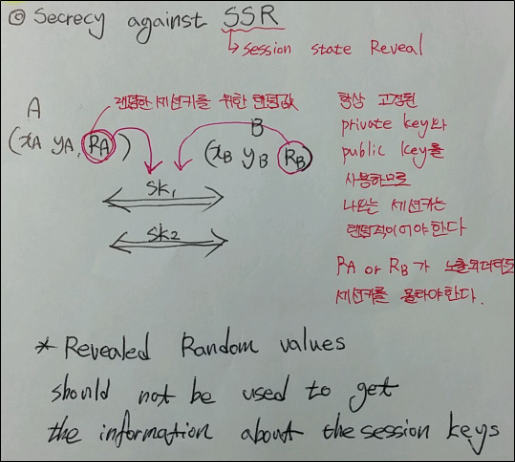 ◎ Secrecy against SSR
↳ Session state Reveal
랜덤한 세션키를 위한 랜덤값
A
(xA yA, RA)
B
(xB yB RB)
SK1
SK2
항상 고정된
private key와
public key를
사용하므로
나오는 세션키는
랜덤적이어야 한다
RA or RB가 노출되더라도
세션키를 몰라야한다.
* Revealed Random values
should not be used to get
the information about the session keys